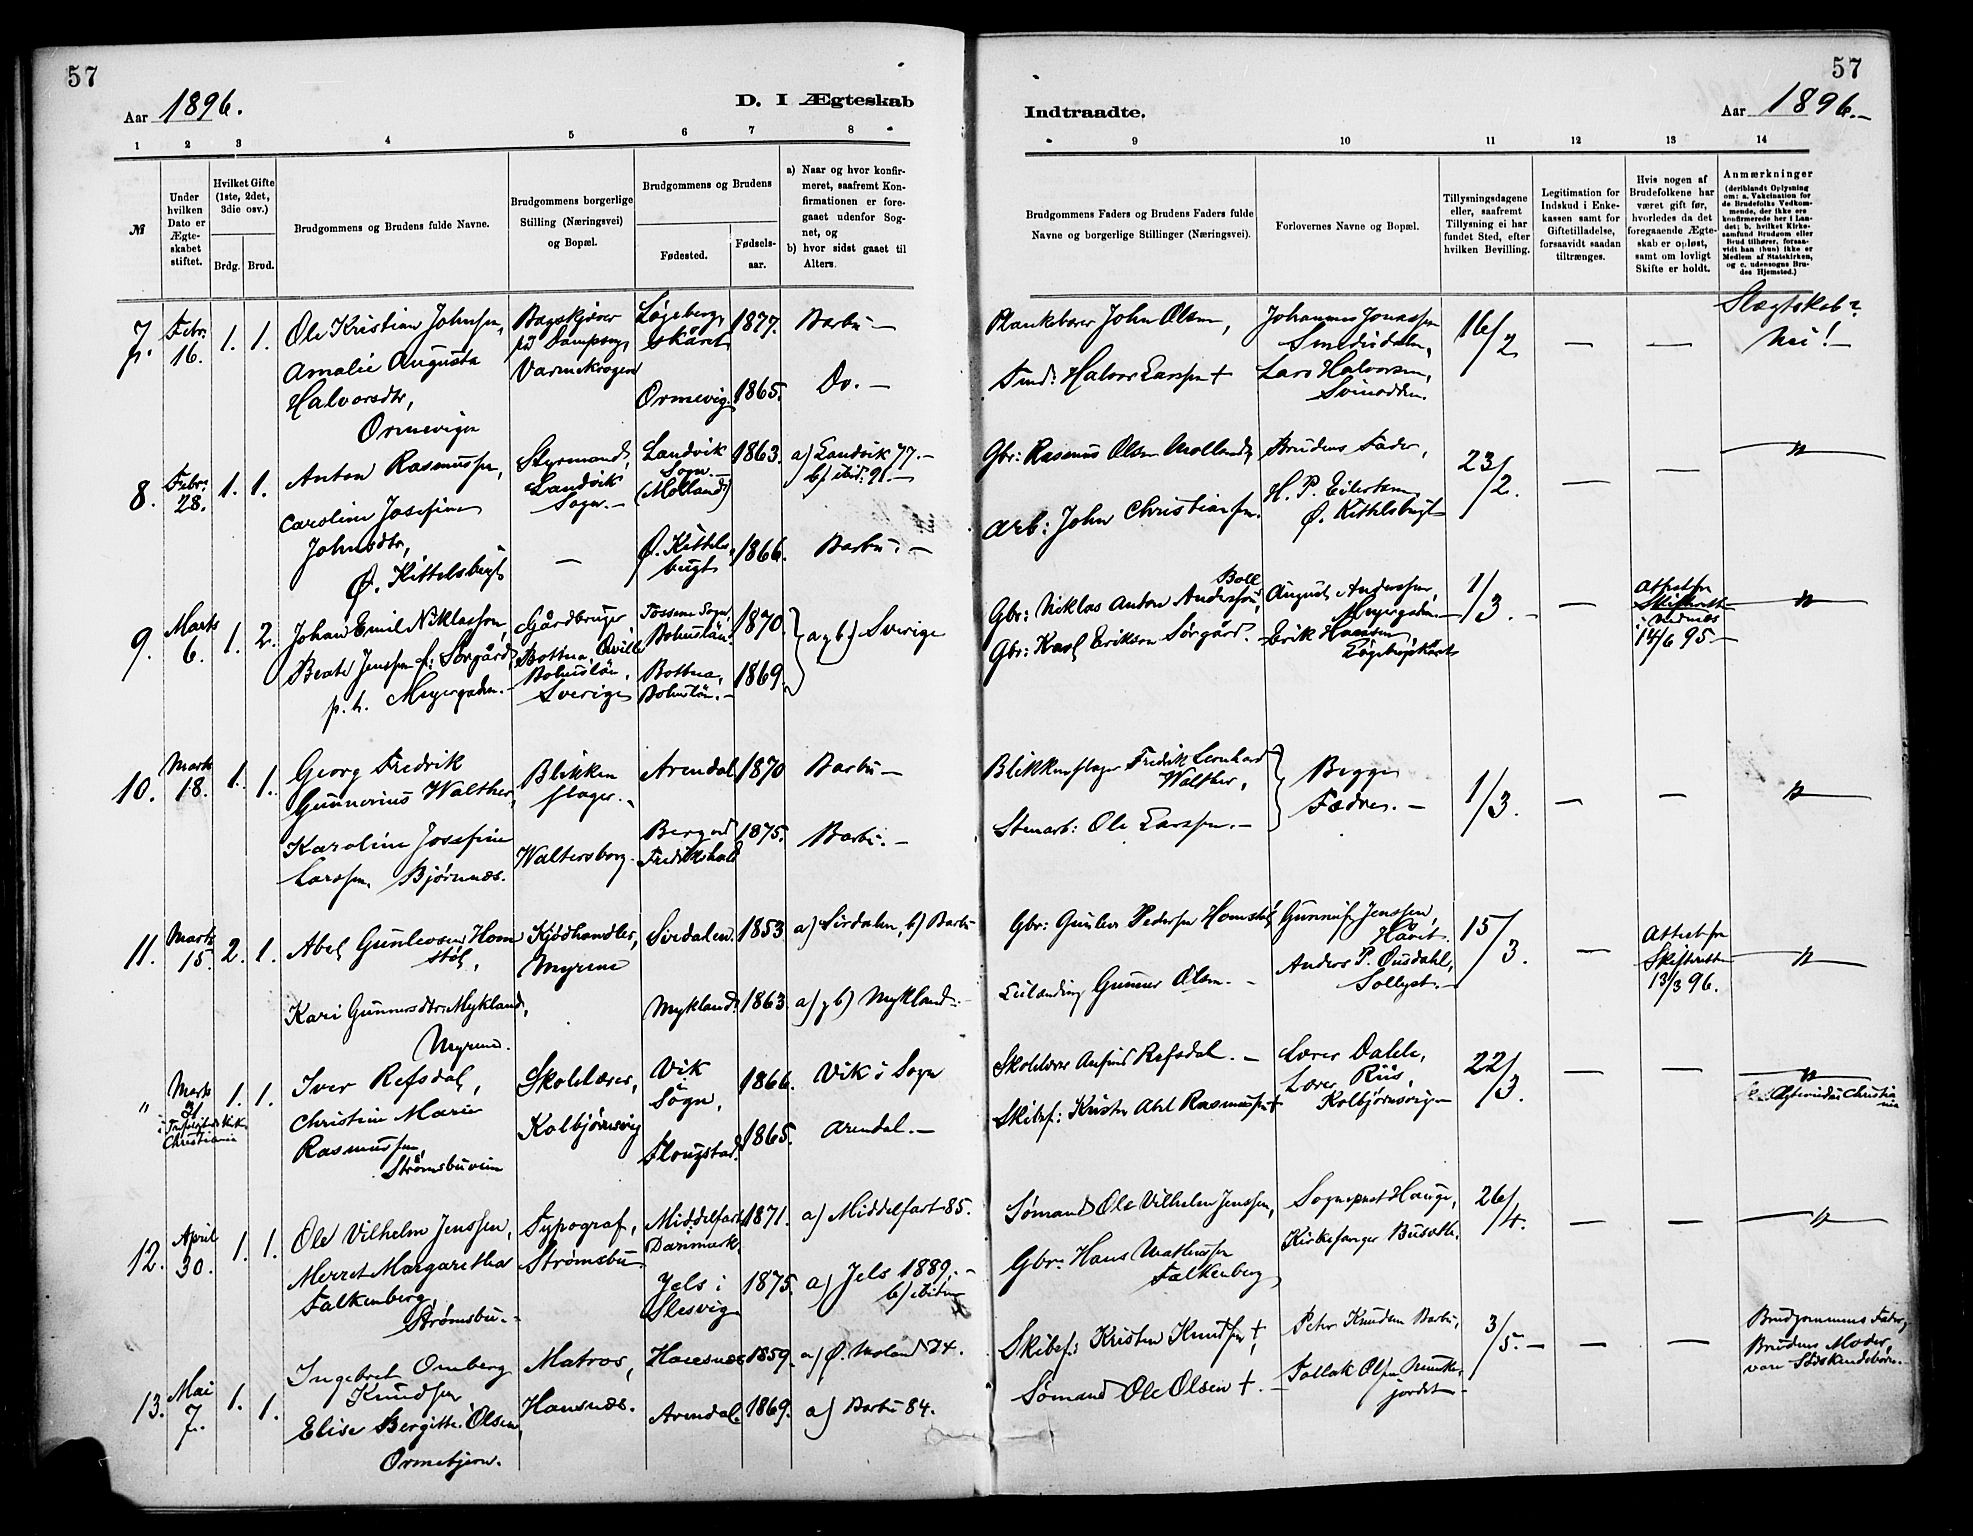 57
Aar 1896.
D. I Ægteskab
1 2 3 4 5 6 7 8
№
Under hvilken Dato er Ægteskabet stiftet.
Hvilket Gifte (1ste, 2det, 3die osv.)
Brdg. Brud.
Brudgommens og Brudens fulde Navne.
Brudgommens borgerlige Stilling (Næringsvei) og Bopæl.
Brudgommens og Brudens
Fødested.
Fødsels-aar.
a) Naar og hvor konfir-
meret, saafremt Kon-
firmationen er fore-
gaaet udenfor Sog-
net, og
b) hvor sidst gaaet til
Alters.
7. Febr. 16. 1. 1.
Ole Kristian Johnsen,
Amalie Augusta
Halvorsdtr,
Ormevigen
Varmekrogen
Ormevig.
1877.
1865.
Barbu –
Do. –
8. Febr. 28. 1. 1.
Anton Rasmussen,
Caroline Josefine
Johnsdtr,
Ø. Kittelsbugt
Styrmand,
Landvik
Sogn. –
–
Landvik
Sogn –
(Molland)
Ø. Kittels-
bugt
1863.
1866.
a) Landvik 77. –
b) ibid: 91. –
Barbu. –
9. Marts 6. 1. 2.
Johan Emil Niklasson,
Beate Jenssen f: Sørgård,
p. t. Meyergaden. –
Gårdbruger
Bottna Qville
Bohuslän,
Sverige
Tossene Sogn,
Bohuslän.
Bottna,
Bohuslän. –
1870
1869.
a & b) Sverige
10. Marts 18. 1. 1.
Georg Fredrik
Gunnerius Walther,
Karoline Josefine
Larssen, Bjørnnæs.
Blikken
slager. –
Waltersborg.
Arendal
Berg ved
Fredrikshald
1870
1875.
Barbu –
Barbu. –
11. Marts 15. 2. 1.
Abel Gunleusen Hom
støl,
Kari Gunnersdtr. Mykland,
Myrene.
Kjødhandler,
Myrene
Sirdalen.
Mykland.
1853
1863
a) Sirdalen, b) Barbu
a) & b) Mykland. –
" Marts 1. 1.
Christiania
Iver Refsdal,
Christine Marie
Rasmussen,
Strømsbuveien
Skolelærer,
Kolbjørnsvig
Vik
i
Sogn,
Flougstad.
1866.
1865.
Vik i Sogn
Arendal. –
12. April 30. 1. 1.
Ole Vilhelm Jenssen,
Merret Margaretha
Falkenberg,
Strømsbu. –
Typograf,
Strømsbu
Middelfart,
Danmark.
Jels i
Slesvig
1871.
1875.
a) Middelfart 85.
a) Jels 1889. –
b) ibidem
13. Mai 7. 1. 1.
Ingebret Omberg
Knudsen
Elise Bergitte Olsen,
Ormebjerv.
Matros,
Hansnæs.
Arendal.
1859.
1869.
a) Barbu 84.
57
Indtraadte.
Aar 1896. –
9 10 11 12 13 14
Brudgommens Faders og Brudens Faders fulde
Navne og borgerlige Stillinger (Næringsvei).
Forlovernes Navne og Bopæl.
Tillysningsdagene
eller, saafremt
Tillysning ei har
fundet Sted, efter
hvilken Bevilling.
Legitimation for
Indskud i Enke-
kassen samt for
Giftetilladelse,
forsaavidt saadan
tiltrænges.
Hvis nogen af
Brudefolkene har
været gift før,
hvorledes da det
foregaaende Ægte-
skab er opløst,
samt om lovligt
Skifte er holdt.
Anmærkninger
(deriblandt Oplysning
om: a. Vaksination for
de Brudefolks Vedkom-
mende, der ikke ere
konfirmerede her i Lan-
det; b. hvilket Kirke-
samfund Brudgom eller
Brud tilhører, forsaa-
vidt han (hun) ikke er
Medlem af Statskirken,
og c. udensogns Bru-
des Hjemsted.)
Plankebærer John Olsen,
Halvor Larssen +
Johannes Jonassen
Smedsdalen,
Lars Halvorsen,
Svinodden.
16/2
–
–
Slægtskab?
Nei! –
Gbr: Rasmus Olsen Molland,
Arb: John Christiansen.
Brudens Fader,
H. P. Eilertsen
Ø. Kittelsbugt
23/2.
–
–
"
Gbr: Niklas Anton Andersson, Boll
Gbr: Karl Eriksen Sørgård.
August Anderssen,
Meyergaden. –
Erik Hanssen
1/3. –
–
Attest fra
Skifteret
i Nednæs
14/6 95 –
"
Blikkenslager Fredrik Leonhard
Walther,
Stenarb: Ole Larssen. –
Begge
Fædre. –
1/3.
–
–
"
Gbr: Gunleu Pedersen Homstøl,
Gunner Olsen. –
Gunnuf Jenssen,
Anders P. Ousdahl,
Sollyst. –
15/3.
–
Attest fra
Skifteretten
13/3 96.
"
Skolelærer Anfind Refsdal. –
Skibsf: Krister Abel Rasmussen +
Lærer Dahle,
Lærer Riis,
Kolbjørnsvigen
22/3.
"
Christiania
Sømand Ole Vilhelm Jenssen,
Gbr: Hans Mathissen
Falkenberg
Sogneprest Hauge,
Kirkesanger Busvold.
26/4.
–
–
"
Skibsf: Kristen Knudsen +,
Sømand Ole Olsen +. –
Peter Knudsen Barbu,
Tallak Olsen Munke-
jordet –
3/5. –
–
–
Brudgommens Fader,
Brudens Moder,
vare Sødskendebørn. –